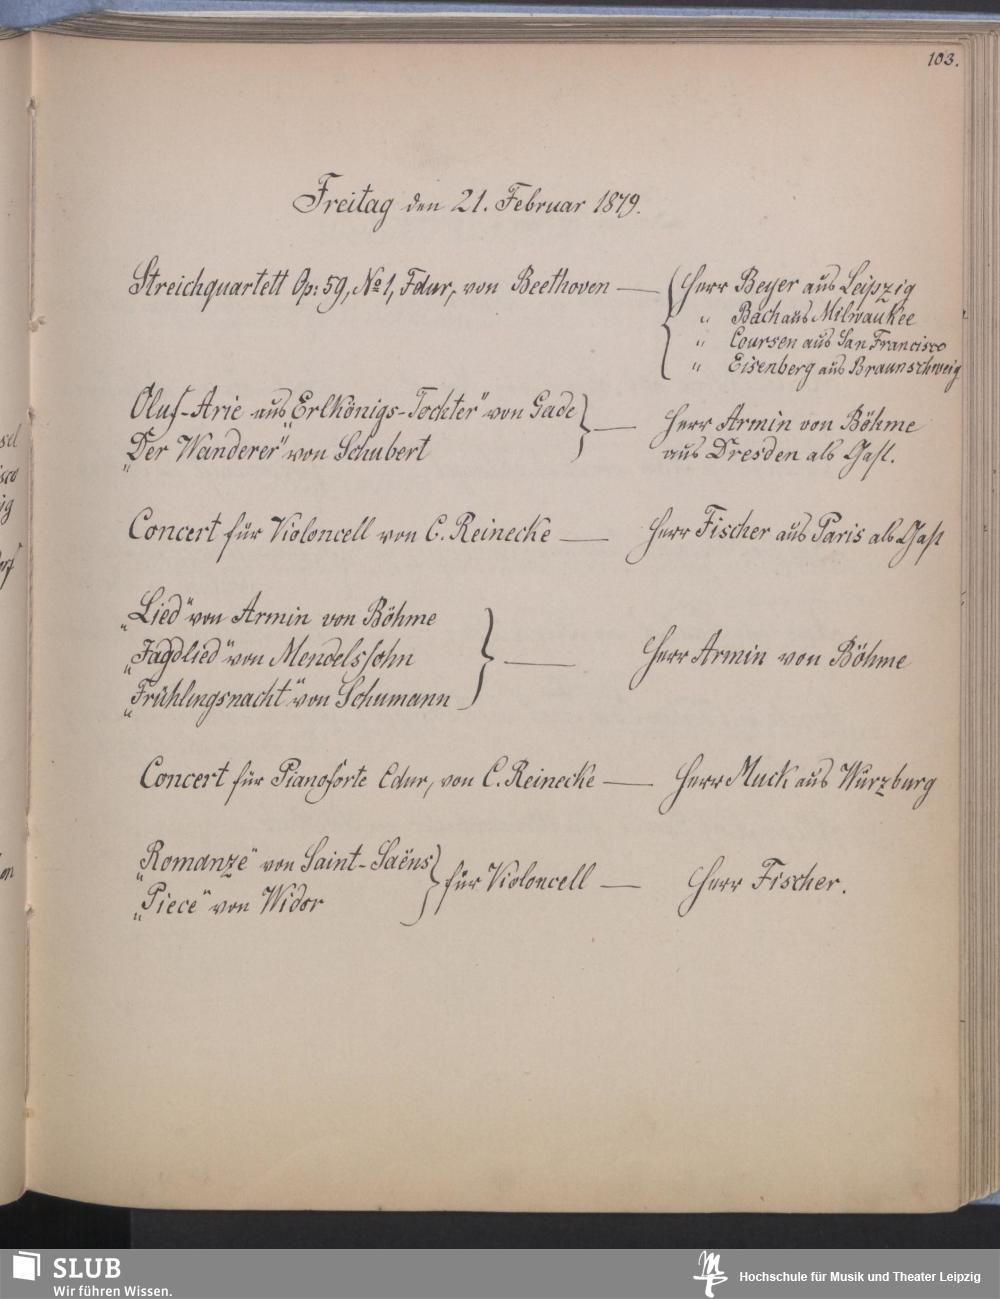 103.
Freitag den 21. Februar 1879.
Streichquartett Op: 59, No 1, Fdur, von Beethoven — Herr Beyer aus Leipzig
" Bach aus Milwaukee
" Coursen aus San Francisco
" Eisenberg aus Braunschweig
Oluf-Arie aus „Erlkönigs-Tochter" von Gade
„Der Wanderer" von Schubert
— Herr Armin von Böhme
aus Dresden als Gast.
Concert für Violoncell von C. Reinecke — Herr Fischer aus Paris als Gast
„Lied" von Armin von Böhme
„Jagdlied" von Mendelssohn
„Frühlingsnacht" von Schumann
— Herr Armin von Böhme
Concert für Pianoforte Edur, von C. Reinecke — Herr Muck aus Würzburg
„Romanze" von Saint-Saëns
„Piece" von Widor
für Violoncell — Herr Fischer.
SLUB
Wir führen Wissen.
Hochschule für Musik und Theater Leipzig